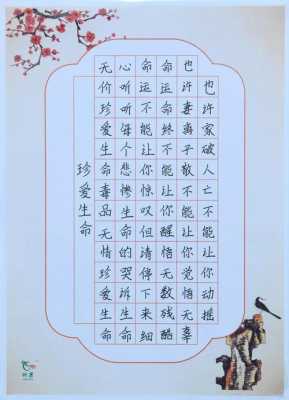 也许家破人亡不能让你动摇
也许妻离子散不能让你觉悟无辜
命运终不能让你醒悟无数残酷
命运不能让你惊叹但请停下来细
心听听每个悲惨生命的哭诉生命
无价珍爱生命毒品无情珍爱生命
珍爱生命